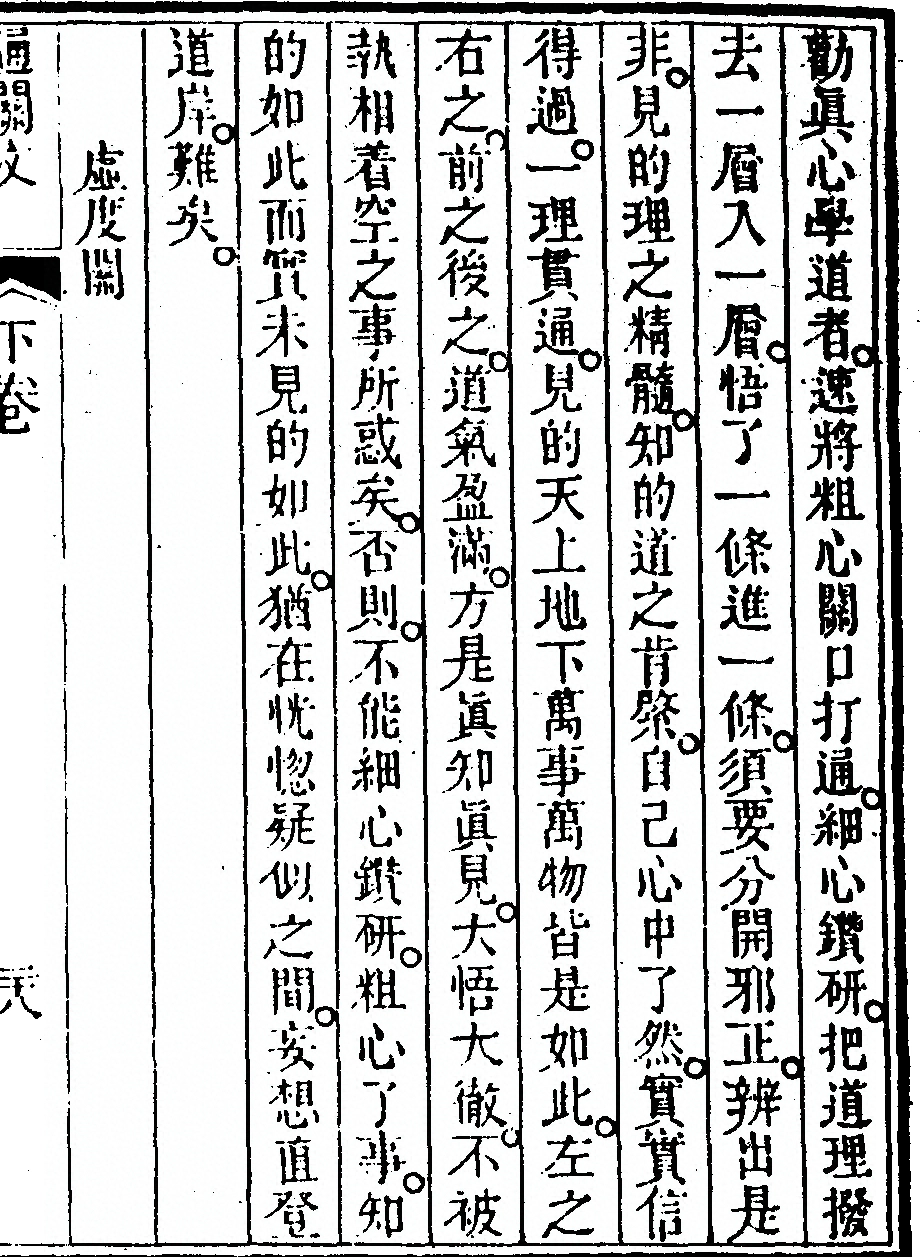 勸眞心學道者。速將粗心關口打通。細心鑽研。把道理撥
去一層入一層。悟了一條進一條。須要分開邪正。辨出是
非。見的理之精髓。知的道之肯綮。自己心中了然。實實信
得過。一理貫通。見的天上地下萬事萬物皆是如此。左之
右之。前之後之。道氣盈滿。方是眞知眞見。大悟大徹。不被
執相着空之事所惑矣。否則。不能細心鑽研。粗心了事。知
的如此而實未見的如此。猶在恍惚疑似之間。妄想直登
道岸。難矣。
虛度關
通關文
下卷